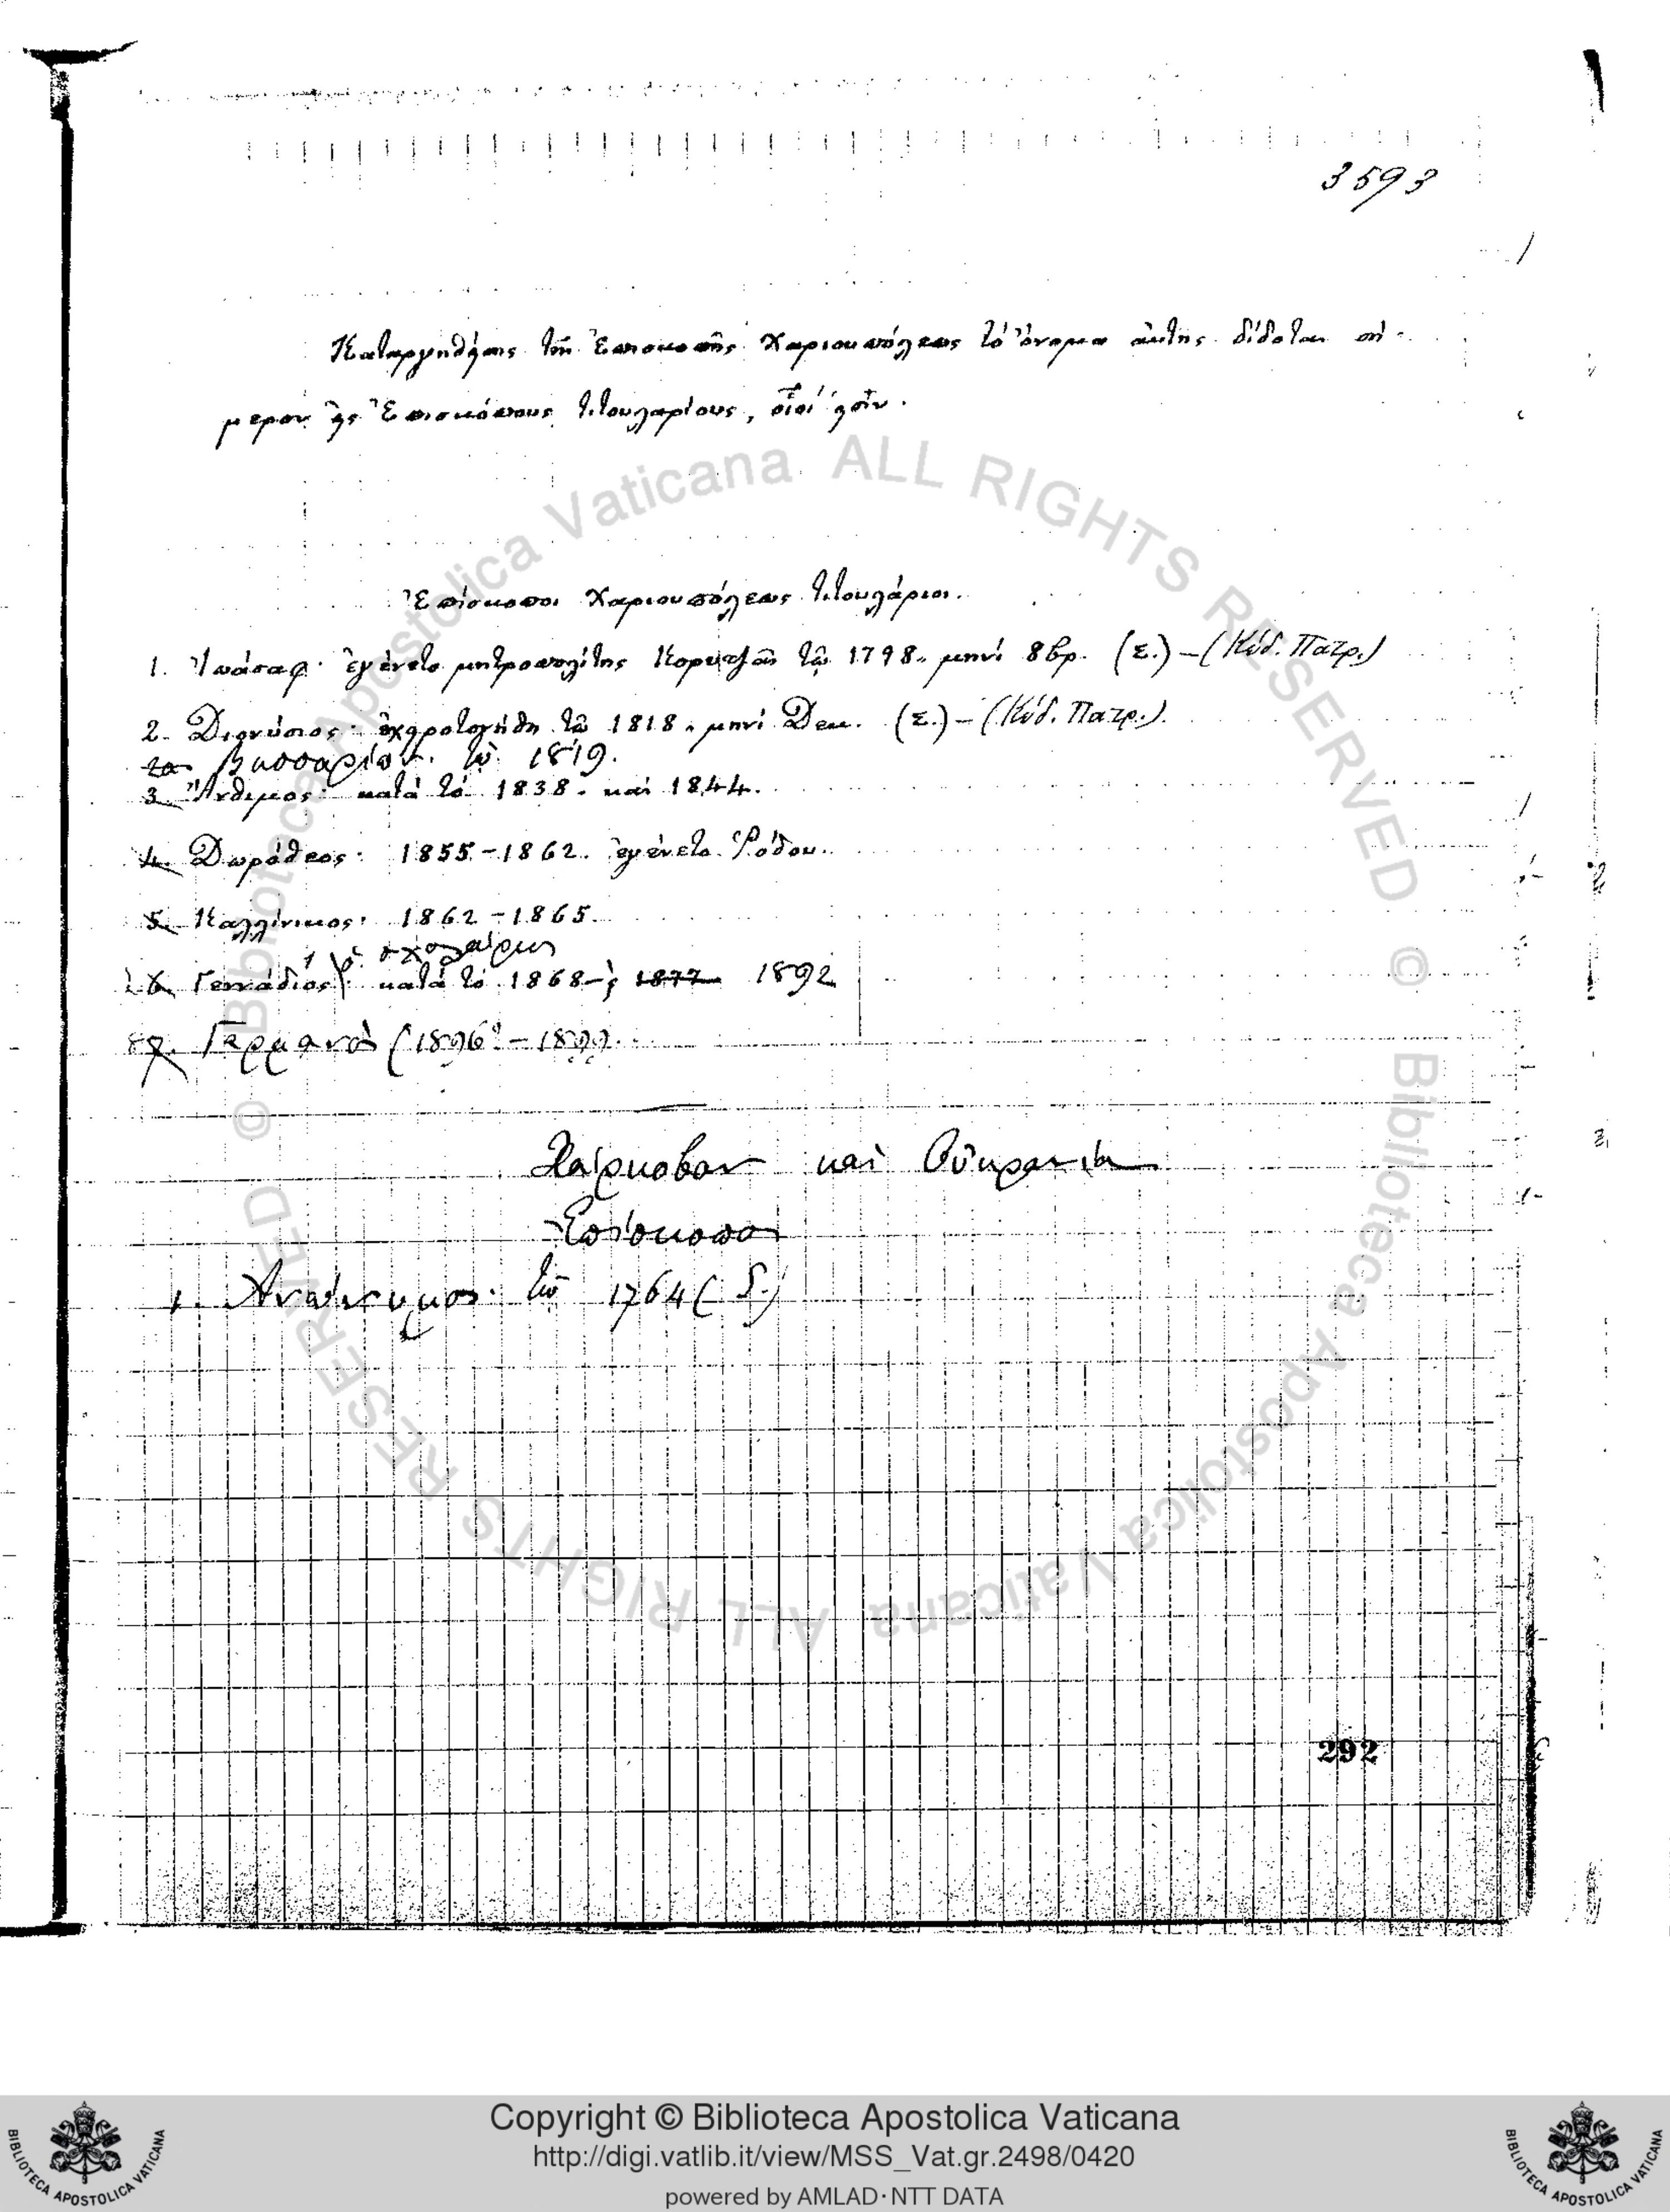 3593
Καταργηθείσης τῆς Ἐπισκοπῆς Χαριουπόλεως τὸ ὄνομα αὐτῆς δίδοται σή-
μερον εἰς Ἐπισκόπους τιτουλαρίους, οἵοί εἰσίν.
Ἐπίσκοποι Χαριουπόλεως τιτουλάριοι.
1. Ἰωάσαφ· ἐγένετο μητροπολίτης Κορυτζᾶς τῷ 1798. μηνί 8βρ. (Σ.) – (Κώδ. Πατρ.)
2. Διονύσιος· ἐχειροτονήθη τῷ 1818. μηνί Δεκ. (Σ.) – (Κώδ. Πατρ.).
2α Βησσαρίων. τῷ 1819.
3. Ἄνθιμος: κατὰ τὸ 1838. καὶ 1844.
4. Δωρόθεος: 1855-1862. ἐγένετο Ῥόδου.
5. Καλλίνικος: 1862-1865.
ὁ σχολάρχης
Γεννάδιος: κατὰ τὸ 1868- 1877 1892
87. Γερμανὸς (1896-1899.
Χαίρκοβον καὶ Οὐκρανία
Ἐπίσκοποι
1. Ἀνώνυμος. τῷ 1764 (δ.)
292
© Biblioteca Apostolica Vaticana ALL RIGHTS RESERVED
© Biblioteca Apostolica Vaticana ALL RIGHTS RESERVED
BIBLIOTECA APOSTOLICA VATICANA
Copyright © Biblioteca Apostolica Vaticana
http://digi.vatlib.it/view/MSS_Vat.gr.2498/0420
powered by AMLAD·NTT DATA
BIBLIOTECA APOSTOLICA VATICANA